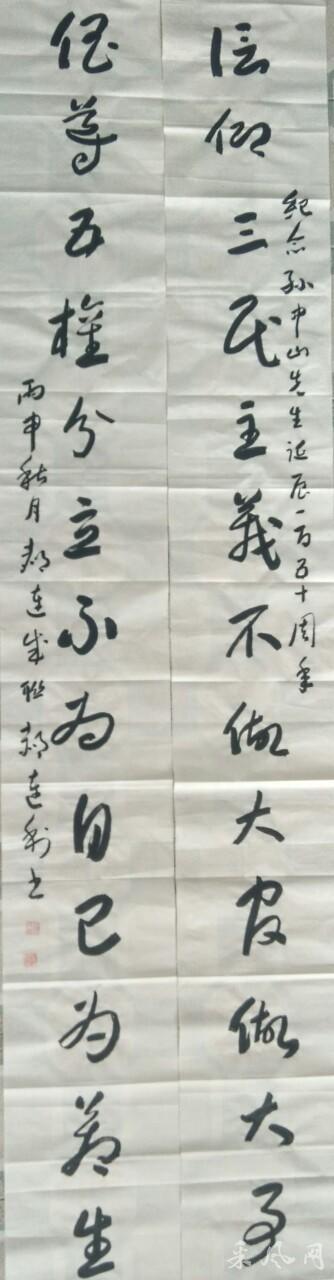 信仰三民主義不做大官做大事
紀念孫中山先生诞辰一百五十周年
尊五權分立不為自己為蒼生
丙申秋月郝連成聯郝連利书
采风网